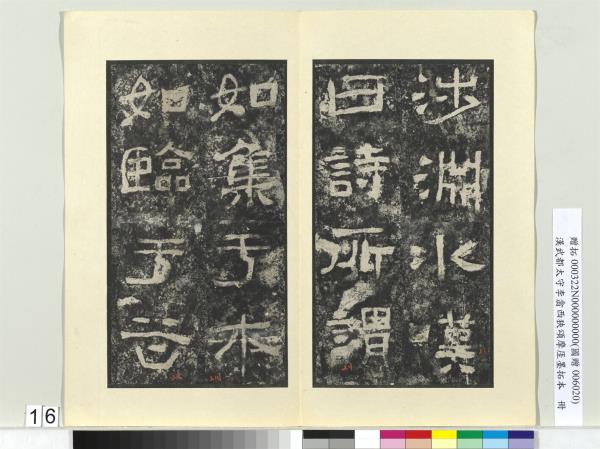 涉淵水嘆
曰詩所謂
如集于木
如臨于谷
贈拓 000322N000000000(國贈 006020)
漢武都太守李翕西狹頌摩崖墨拓本 冊
16